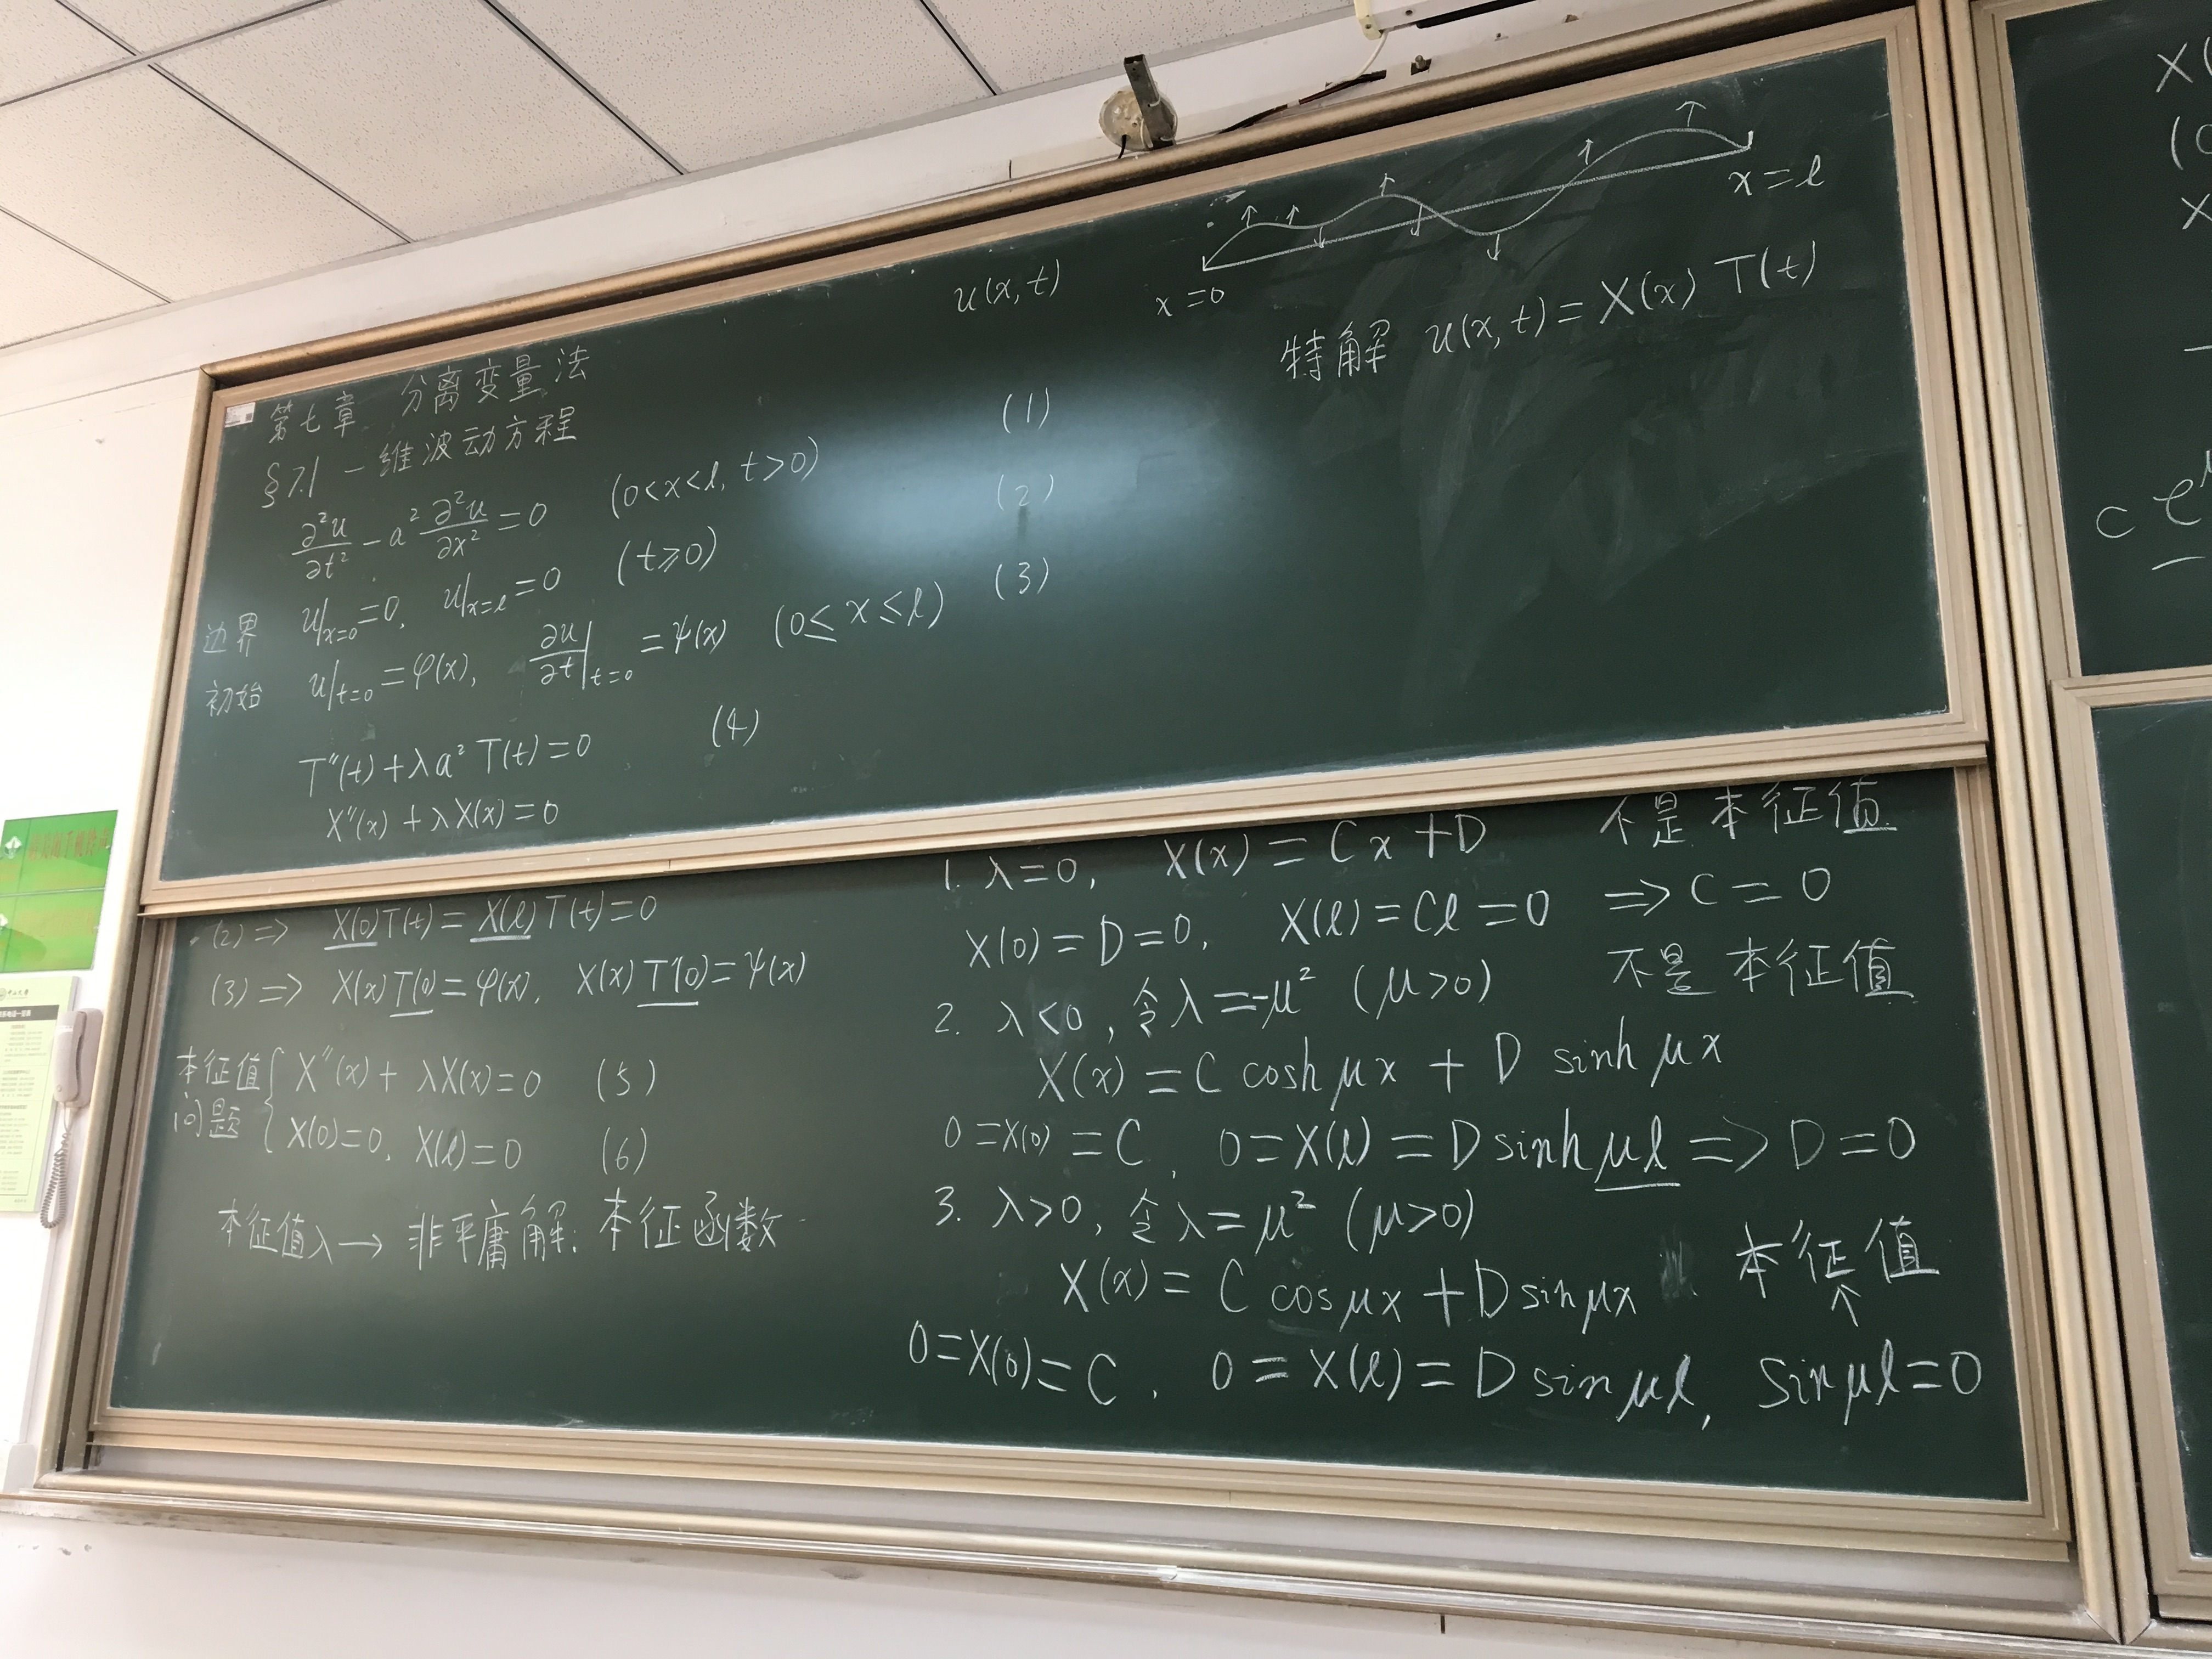 u(x,t)
x=0
x=l
特解 u(x,t)=X(x) T(t)
第七章 分离变量法
§7.1 一维波动方程
∂²u/∂t² - a² ∂²u/∂x² = 0 (0<x<l, t>0) (1)
边界 u|x=0 =0, u|x=l =0 (t≥0) (2)
初始 u|t=0 =φ(x), ∂u/∂t|t=0 =ψ(x) (0≤x≤l) (3)
T″(t)+λa²T(t)=0 (4)
X″(x)+λX(x)=0
(2)=> X(0)T(t)=X(l)T(t)=0
(3)=> X(x)T(0)=φ(x), X(x)T'(0)=ψ(x)
本征值问题 { X″(x)+λX(x)=0 (5)
X(0)=0, X(l)=0 (6)
本征值λ→ 非平庸解: 本征函数
1. λ=0, X(x)=Cx+D 不是本征值
X(0)=D=0, X(l)=Cl=0 => C=0
2. λ<0, 令λ=-μ² (μ>0) 不是本征值
X(x)=C cosh μx + D sinh μx
0=X(0)=C, 0=X(l)=D sinh μl => D=0
3. λ>0, 令λ=μ² (μ>0)
X(x)=C cos μx + D sin μx 本征值
↑
0=X(0)=C, 0=X(l)=D sin μl, sin μl=0
X(
x
c e